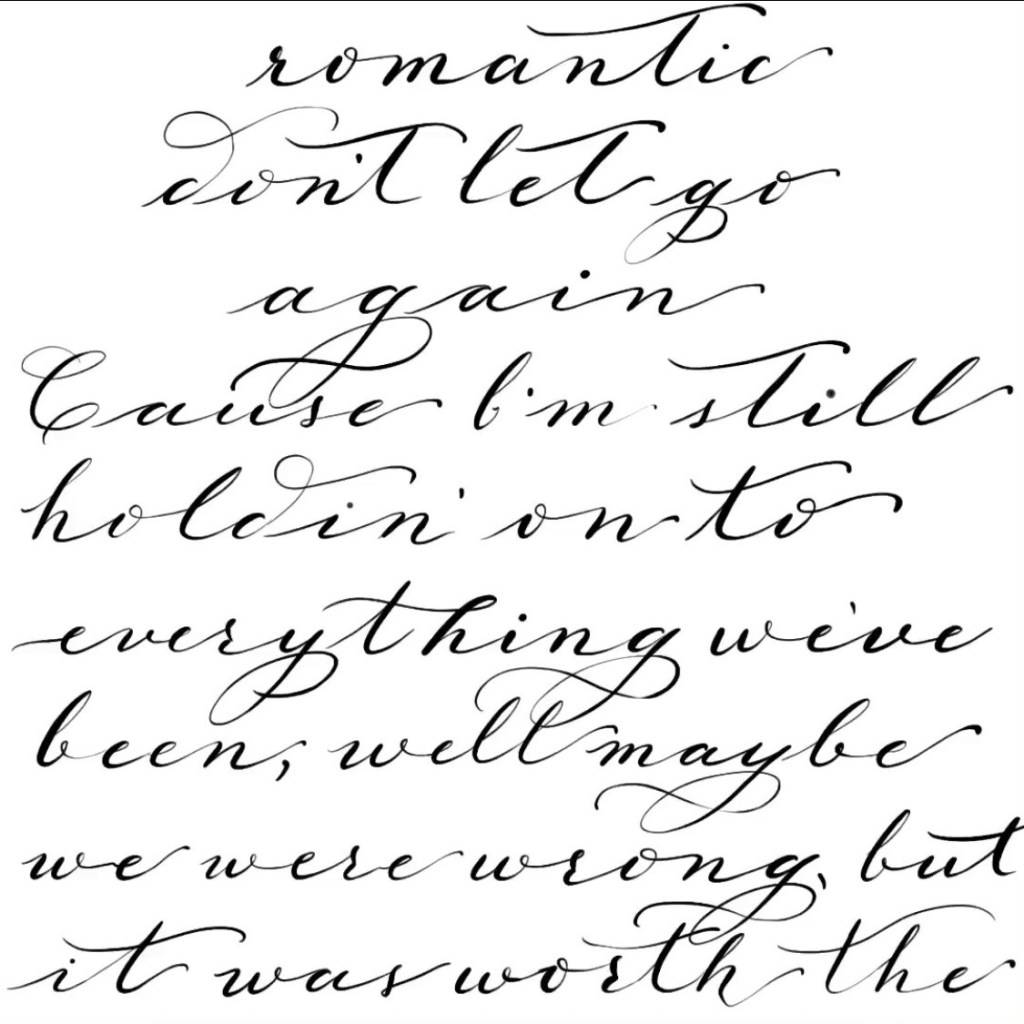 romantic
don't let go
again
Cause I'm still
holdin' on to
everything we've
been, well maybe
we were wrong, but
it was worth the